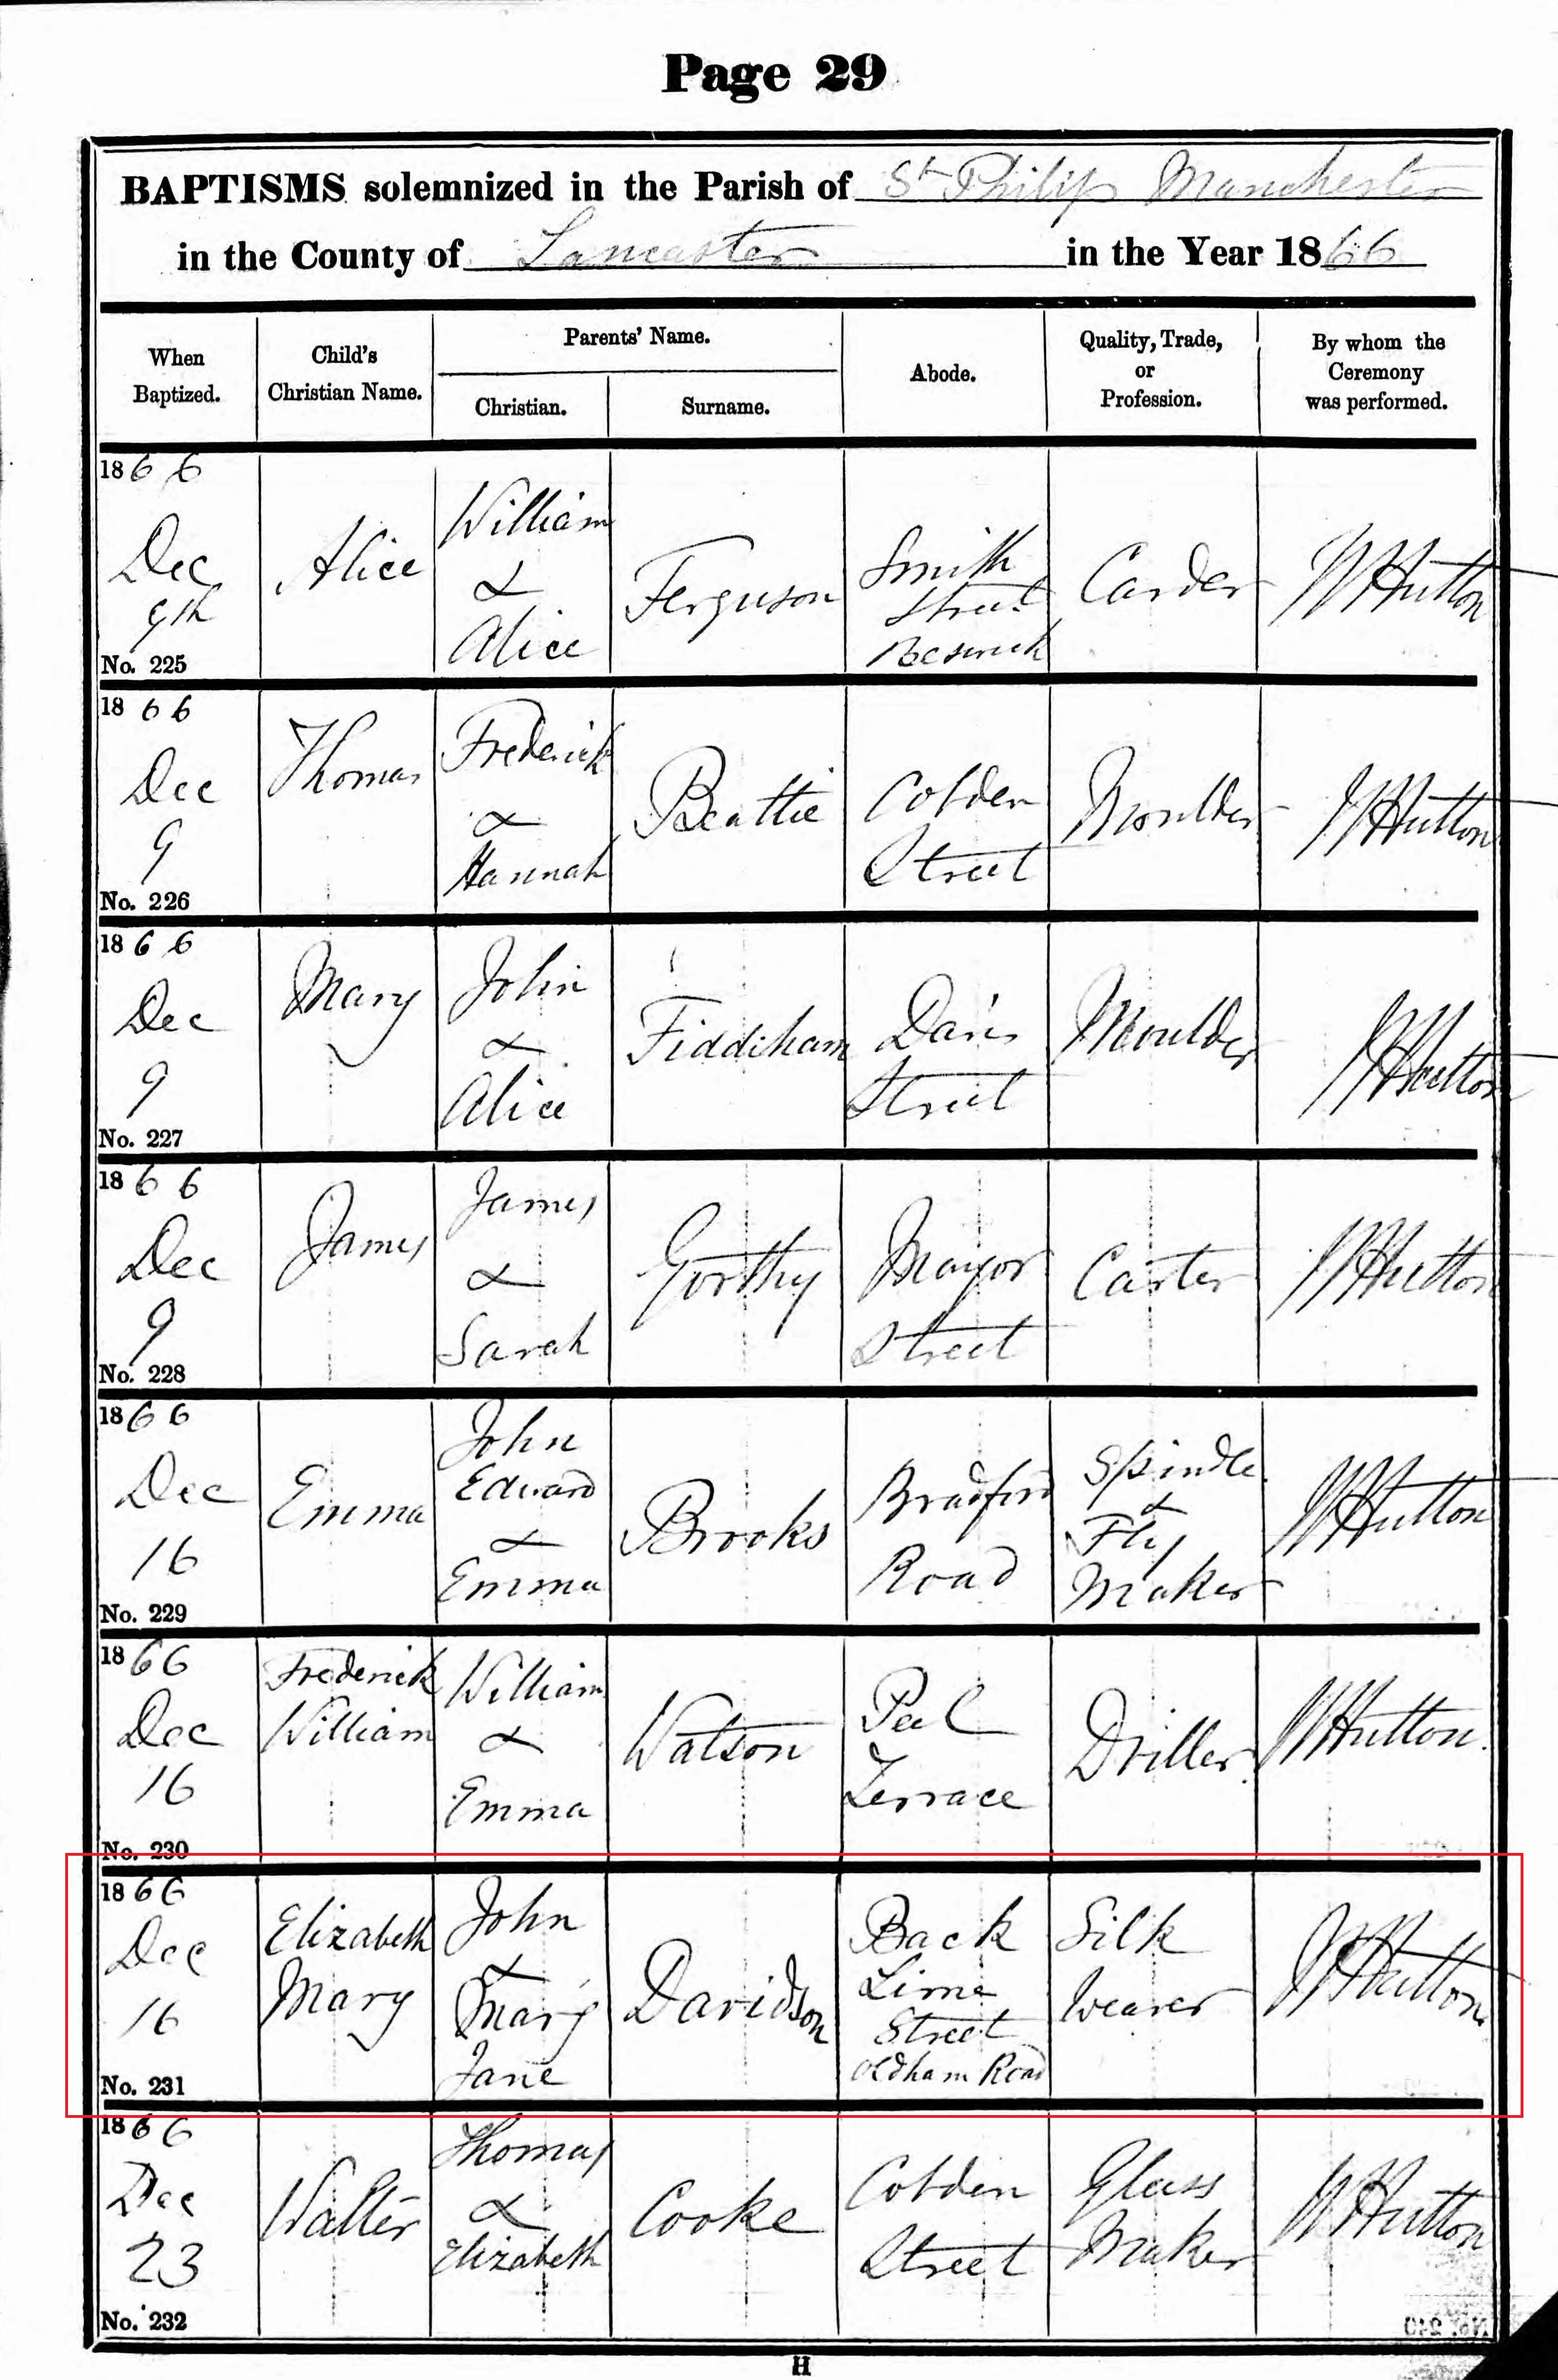 Page 29
BAPTISMS solemnized in the Parish of St Philip Manchester
in the County of Lancaster in the Year 1866
When Baptized.
Child's Christian Name.
Parents' Name.
Christian.
Surname.
Abode.
Quality, Trade, or Profession.
By whom the Ceremony was performed.
1866
Dec
9th
No. 225
Alice
William
&
Alice
Ferguson
Smith
Street
Beswick
Carder
W Hutton
1866
Dec
9
No. 226
Thomas
Frederick
&
Hannah
Beattie
Cobden
Street
Moulder
W Hutton
1866
Dec
9
No. 227
Mary
John
&
Alice
Fiddiham
Davis
Street
Moulder
W Hutton
1866
Dec
9
No. 228
James
James
&
Sarah
Gorthy
Mayor
Street
Carter
W Hutton
1866
Dec
16
No. 229
Emma
John
Edward
&
Emma
Brooks
Bradford
Road
Spindle
&
Fly
Maker
W Hutton
1866
Dec
16
No. 230
Frederick
William
William
&
Emma
Watson
Peel
Terrace
Driller
W Hutton
1866
Dec
16
No. 231
Elizabeth
Mary
John
&
Mary
Jane
Davidson
Back
Lime
Street
Oldham Road
Silk
Weaver
W Hutton
1866
Dec
23
No. 232
Walter
Thomas
&
Elizabeth
Cooke
Cobden
Street
Glass
Maker
W Hutton
H